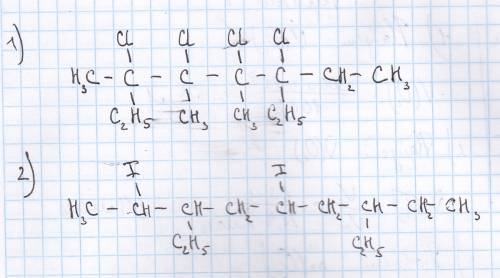 1)
Cl Cl Cl Cl
H₃C - C - C - C - C - CH₂ - CH₃
C₂H₅ CH₃ CH₃ C₂H₅
2)
I I
H₃C - CH - CH - CH₂ - CH - CH₂ - CH - CH₂ - CH₃
C₂H₅ C₂H₅